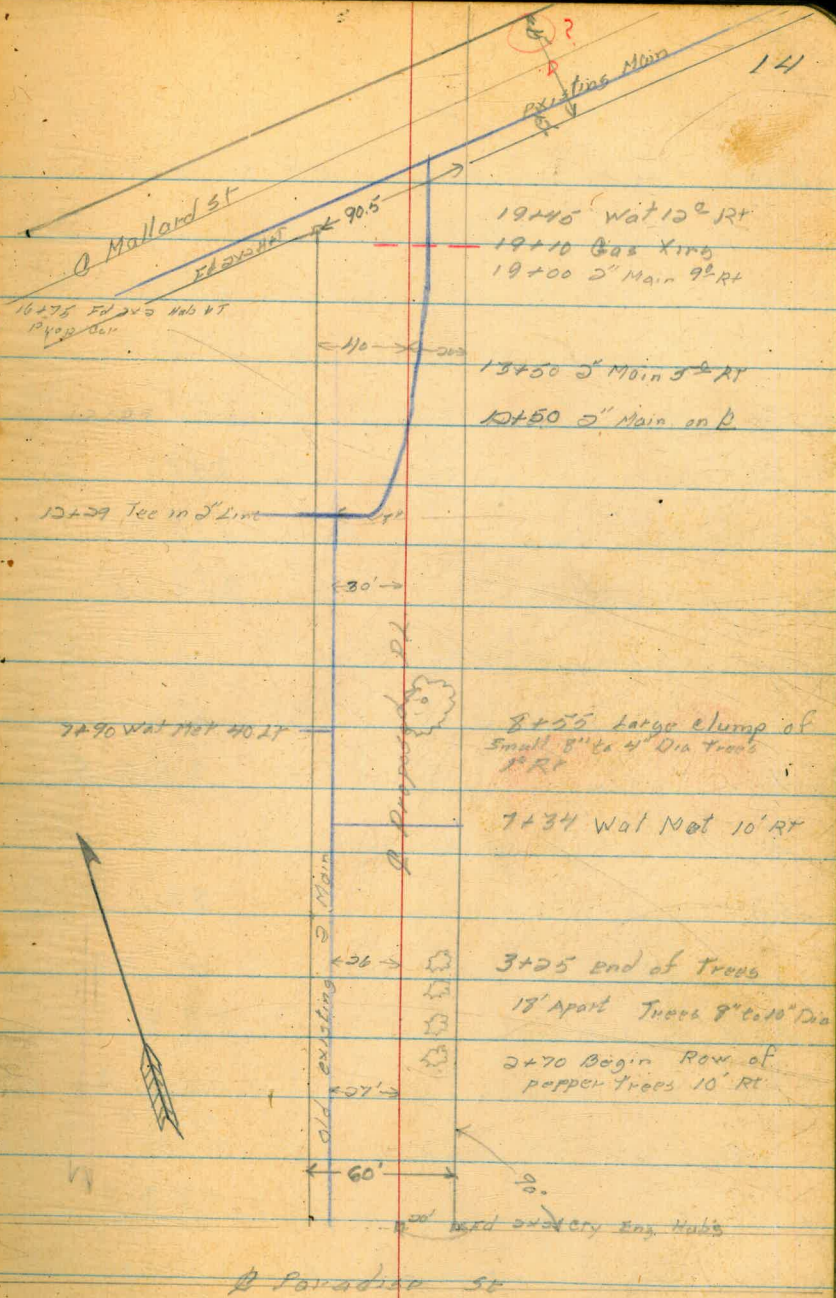 14
?
Existing Main
℄ Mallard St
Fd 2x2 Hub
90.5
19+45 Wat 12° Rt
19+10 Gas Xing
19+00 2" Main 9° Rt
16+75 Fd 2x2 Hub & T
40
20
13+50 2" Main 3° Rt
12+50 2" Main on ℄
12+29 Tee in 2" Line
30'
℄ Proposed
7+90 Wat Met 40 Lt
8+55 Large clump of
Small 8" to 4" Dia Trees
1° Rt
7+34 Wat Met 10' Rt
Old existing 2" Main
26
3+25 End of Trees
18' Apart Trees 8" to 10" Dia
2+70 Begin Row of
pepper Trees 10' Rt
27'
60'
90°
20'
Fd 2x2 Cty Eng. Hubs
℄ Paradise St